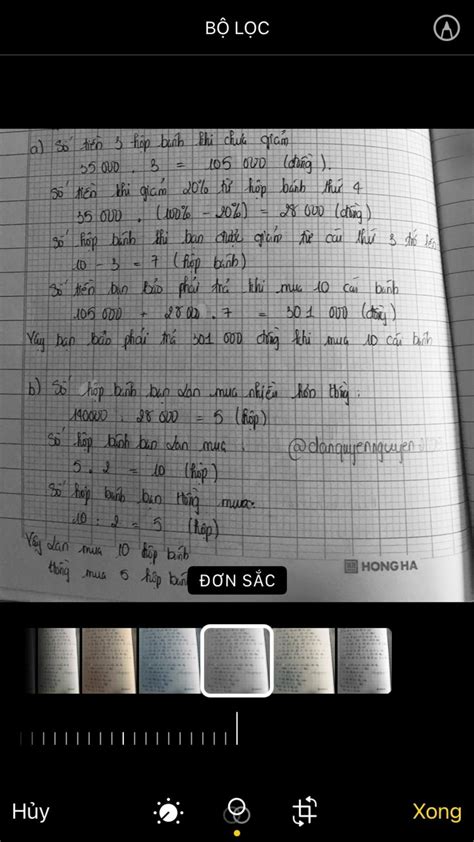 BỘ LỌC
a) Số tiền 3 hộp bánh khi chưa giảm
35 000 . 3 = 105 000 (đồng).
Số tiền khi giảm 20% từ hộp bánh thứ 4
35 000 . (100% - 20%) = 28 000 (đồng)
Số hộp bánh khi bạn được giảm từ cái thứ 3 trở lên
10 - 3 = 7 (hộp bánh)
Số tiền bạn Bảo phải trả khi mua 10 cái bánh
105 000 + 28 000 . 7 = 301 000 (đồng)
Vậy bạn bảo phải trả 301 000 đồng khi mua 10 cái bánh
b) Số hộp bánh bạn Lan mua nhiều hơn Hồng.
140000 : 28 000 = 5 (hộp)
Số hộp bánh bạn Lan mua.
@danquyennguyen
5 . 2 = 10 (hộp)
Số hộp bánh bạn Hồng mua:
10 : 2 = 5 (hộp)
Vậy Lan mua 10 hộp bánh
Hồng mua 5 hộp bánh
HONG HA
ĐƠN SẮC
Hủy
Xong